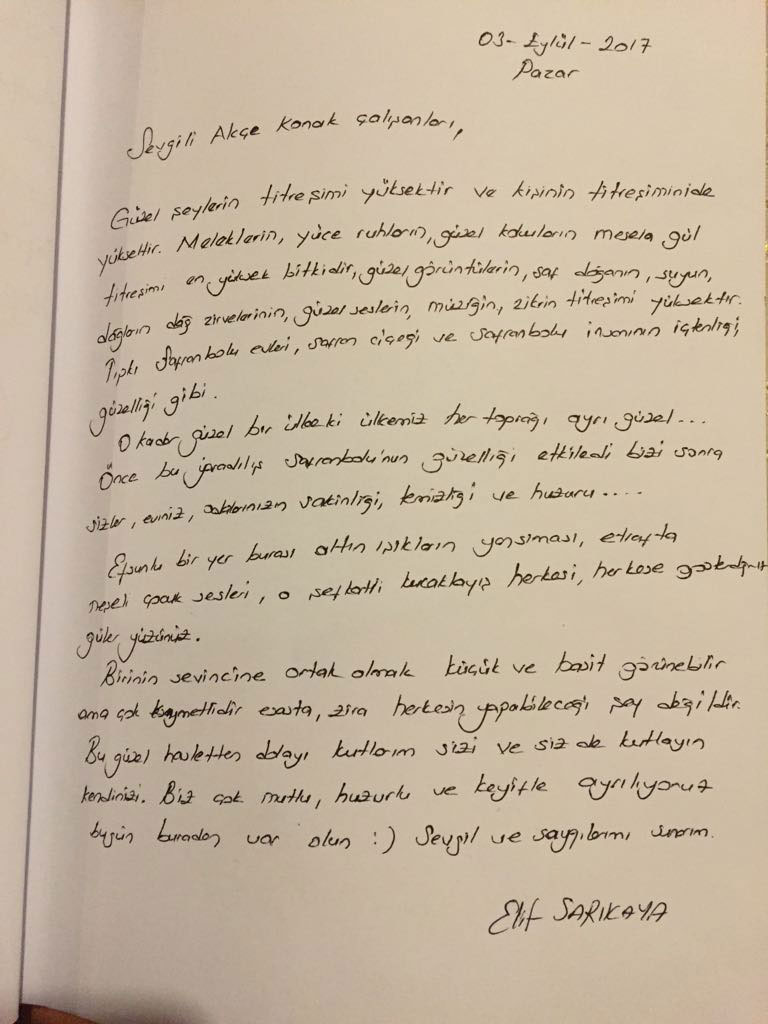 03-Eylül-2017
Pazar
Sevgili Akçe Konak çalışanları,
Güzel şeylerin titreşimi yüksektir ve kişinin titreşiminide
yükseltir. Meleklerin, yüce ruhların, güzel kokuların mesela gül
titreşimi en yüksek bitkidir, güzel görüntülerin, saf doğanın, suyun,
dağların dağ zirvelerinin, güzel seslerin, müziğin, zikrin titreşimi yüksektir.
Tıpkı Safranbolu evleri, safran çiçeği ve safranbolu insanının içtenliği,
güzelliği gibi.
O kadar güzel bir ülke ki ülkemiz her toprağı ayrı güzel...
Önce bu yaradılış safranbolu'nun güzelliği etkiledi bizi sonra
sizler, eviniz, odalarınızın sakinliği, temizliği ve huzuru....
Efsunlu bir yer burası altın ışıkların yansıması, etrafta
neşeli çocuk sesleri, o şefkatli kucaklayış herkesi, herkese gösterdiğiniz
güler yüzünüz.
Birinin sevincine ortak olmak küçük ve basit görünebilir
ama çok kıymetlidir esasta, zira herkesin yapabileceği şey değildir.
Bu güzel hasletten dolayı kutlarım sizi ve siz de kutlayın
kendinizi. Biz çok mutlu, huzurlu ve keyifle ayrılıyoruz
bugün buradan var olun :) Sevgi ve saygılarımı sunarım.
Elif SARIKAYA